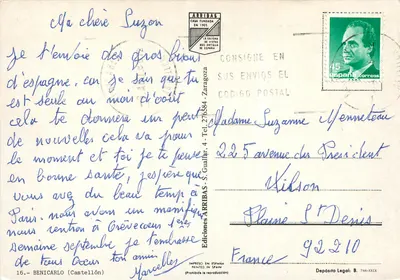 Ma chère Suzon
Je t'envoie des gros bisous
d'espagne, car je sais que tu
est seule au mois d'août
cela te donnera un peut
de nouvelles cela va pour
le moment et toi je te pense
en bonne santé, j'espère que
vous avez du beau temps à
Paris. nous avons un magnifique
nous rentron à
semaine septembre je t'embrasse
de tous cœur ton ami
Marcelle
16.- BENICARLO (Castellón)
ARRIBAS
CASA FUNDADA
EN 1905
LA PRIMERA
EN POSTALES
DE ESPAÑA
Ediciones ARRIBAS - S. Guallar, 4 - Tel. 276584 - Zaragoza
IMPRESO EN ESPAÑA
PRINTED IN SPAIN
(Prohibida la reproducción)
CONSIGNE EN
SUS ENVIOS EL
CODIGO POSTAL
45
ESPAÑA CORREOS
Madame Suzanne Menneteau
225 avenue des Président
Wilson
Plaine St Denis
92210
France
Depósito Legal: B.